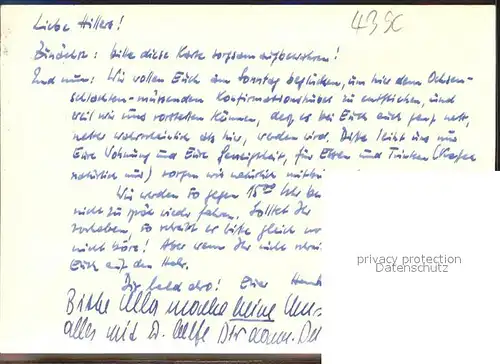 Liebe Hillers! 43 SC
Zunächst: bitte diese Karte sorgsam aufbewahren!
Und nun: Wir wollen Euch am Sonntag beglücken, um hier dem Ochsen-
schlachten-müssenden Konfirmationstrubel zu entfliehen, und
weil wir uns vorstellen können, daß es bei Euch auch ganz nett,
netter wahrscheinlich als hier, werden wird. Bitte leiht uns nur
Eure Wohnung und Eure Geneigtheit, für Essen und Trinken
natürlich nur) sorgen wir natürlich
Wir werden so gegen 15 00 Uhr
nicht zu spät wieder fahren. Solltet Ihr
vorhaben, so schreibt es bitte gleich
nicht böse! Aber wenn Ihr nicht
Euch auf den Hals.
Bis bald also! Euer
Bitte Ulla mache keine
alles mit u. helfe Dir dann.
privacy protection
Datenschutz